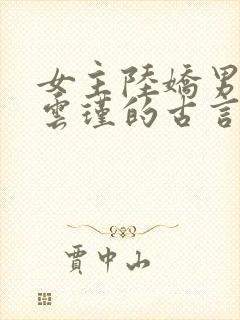 女主陸嬌男
雲瑾的古言
賈中山